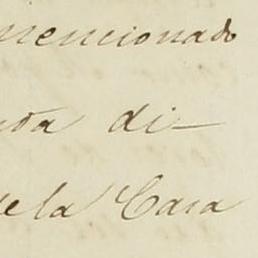 mencionado
di-
de la Casa